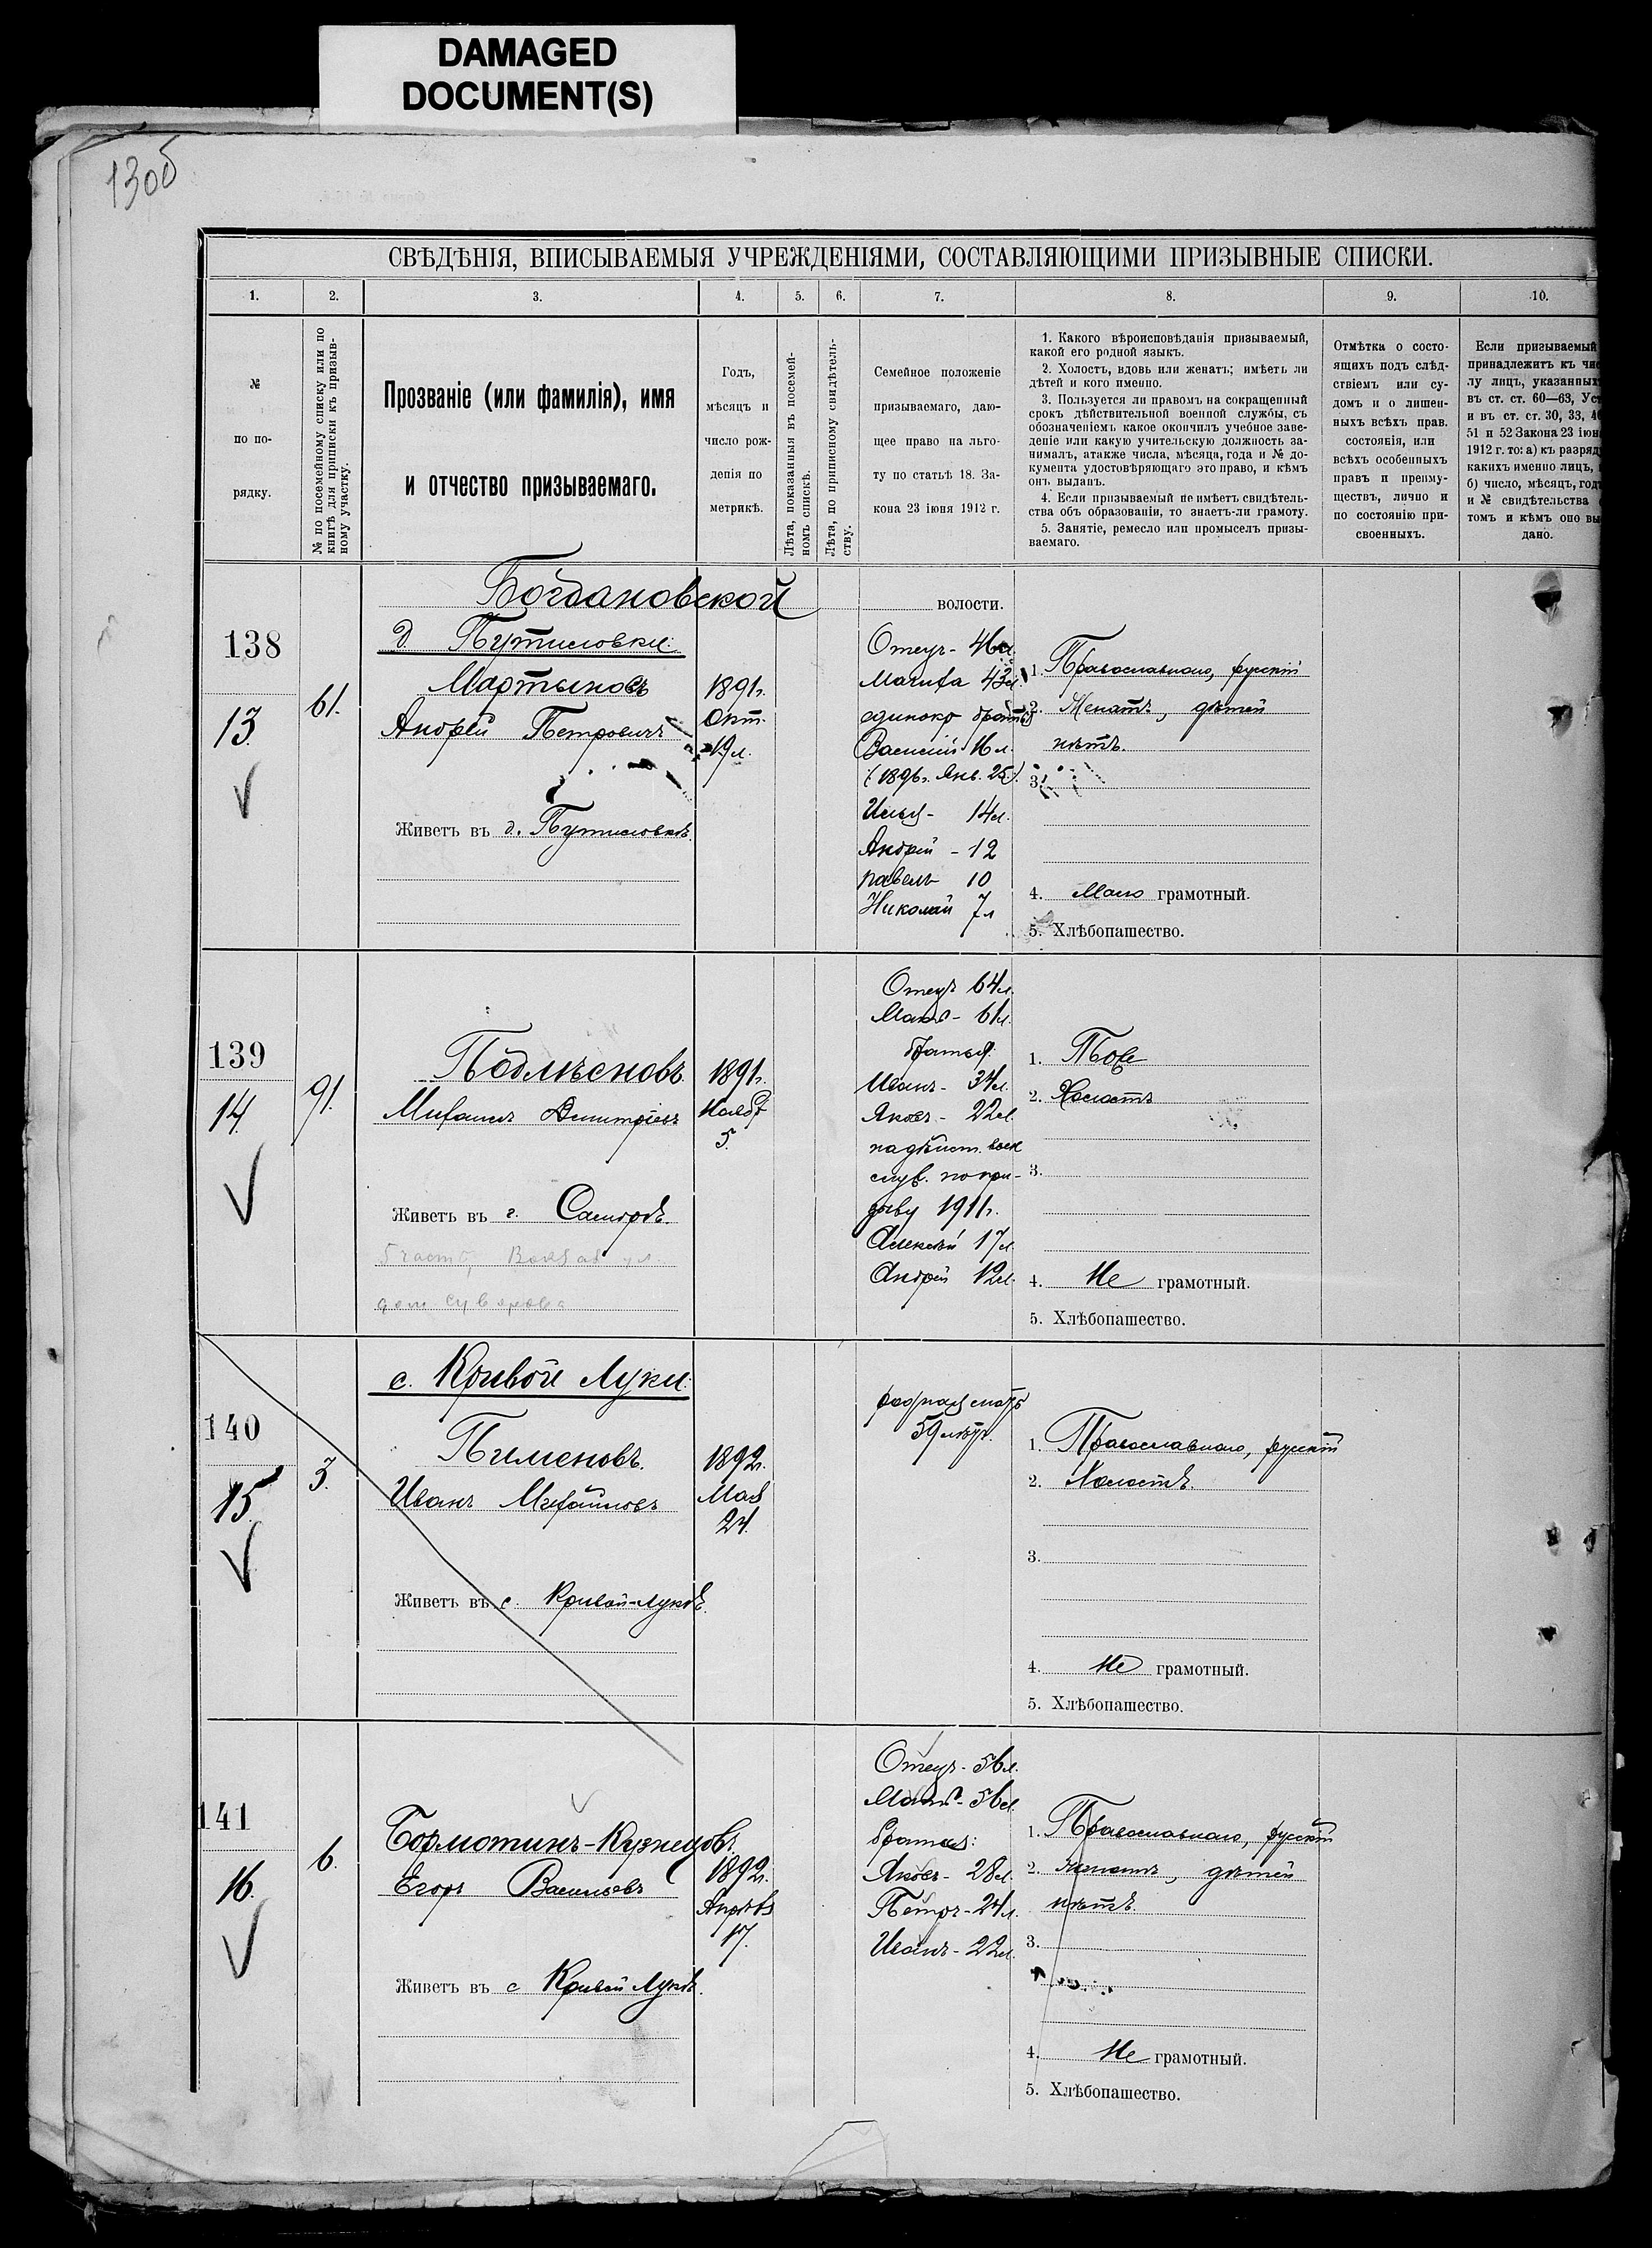 DAMAGED
DOCUMENT(S)
130б
СВѢДѢНІЯ, ВПИСЫВАЕМЫЯ УЧРЕЖДЕНІЯМИ, СОСТАВЛЯЮЩИМИ ПРИЗЫВНЫЕ СПИСКИ.
1. 2. 3. 4. 5. 6. 7. 8. 9. 10.
№
по по-
рядку.
№ по посемейному списку или по
книгѣ для приписки къ призыв-
ному участку.
Прозваніе (или фамилія), имя
и отчество призываемаго.
Годъ,
мѣсяцъ и
число рож-
денія по
метрикѣ.
Лѣта, показанныя въ посемей-
номъ спискѣ.
Лѣта, по приписному свидѣтель-
ству.
Семейное положеніе
призываемаго, даю-
щее право на льго-
ту по статьѣ 18. За-
кона 23 іюня 1912 г.
1. Какого вѣроисповѣданія призываемый,
какой его родной языкъ.
2. Холостъ, вдовъ или женатъ; имѣетъ ли
дѣтей и кого именно.
3. Пользуется ли правомъ на сокращенный
срокъ дѣйствительной военной службы, съ
обозначеніемъ какое окончилъ учебное заве-
деніе или какую учительскую должность за-
нималъ, атакже числа, мѣсяца, года и № до-
кумента удостовѣряющаго это право, и кѣмъ
онъ выданъ.
4. Если призываемый не имѣетъ свидѣтель-
ства объ образованіи, то знаетъ-ли грамоту.
5. Занятіе, ремесло или промыселъ призы-
ваемаго.
Отмѣтка о состо-
ящихъ подъ слѣд-
ствіемъ или су-
домъ и о лишен-
ныхъ всѣхъ прав.
состоянія, или
всѣхъ особенныхъ
правъ и преиму-
ществъ, лично и
по состоянію при-
своенныхъ.
Если призываемый
принадлежитъ къ чис
лу лицъ, указанныхъ
въ ст. ст. 60—63, Уст
и въ ст. ст. 30, 33, 4
51 и 52 Закона 23 іюн
1912 г. то: а) къ разряд
какихъ именно лицъ,
б) число, мѣсяцъ, год
и № свидѣтельства
томъ и кѣмъ оно вы
дано.
Богдановской
волости.
138
13.
61.
д. Путиловки.
Мартыновъ
Андрей Петровичъ
Живетъ въ д. Путиловкѣ
1891г.
Окт.
19
Отецъ - 46л.
Мачиха 43л.
единокр братья
Василій 16л.
(1896г. Янв. 25).
Илья - 14л.
Андрей - 12
Павелъ 10
Николай 7л
1. Православнаго, русскій
2. Женатъ, дѣтей
нѣтъ.
3.
4. Мало грамотный.
5. Хлѣбопашество.
139
14.
91.
Подлѣсновъ
Михаилъ Дмитріевъ
Живетъ въ г. Самарѣ.
5 часть, Вокзал ул.
1891г.
Нояб
5.
Отецъ 64л.
Мать - 61л.
братья:
Иванъ - 34л.
Яковъ - 22л.
на дѣйст. воен
служ. по при-
зыву 1911г.
Алексѣй 17л.
Андрей 12л.
1. Тоже
2. Холостъ
3.
4. Не грамотный.
5. Хлѣбопашество.
140
15.
3.
с. Кривой Луки.
Пименовъ.
Иванъ Михайловъ
Живетъ въ с. Кривой-Лукѣ.
1892г.
Мая
24.
родная мать
59 лѣтъ.
1. Православнаго, русскій
2. Холостъ.
3.
4. Не грамотный.
5. Хлѣбопашество.
141
16.
6.
Бормотинъ-Кузнецовъ.
Егоръ Васильевъ
Живетъ въ с Кривой Лукѣ.
1892г.
Апрѣля
17.
Отецъ - 56л.
Мать - 56л.
братья:
Яковъ - 28л.
Петръ - 24л.
Иванъ - 22л.
1. Православнаго, русскій
2. женатъ, дѣтей
нѣтъ.
3.
4. Не грамотный.
5. Хлѣбопашество.